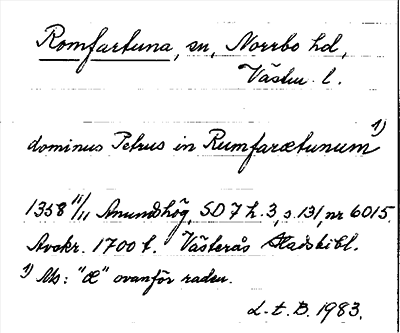 Romfartuna, sn, Norrbo hd,
Västm. l.
dominus Petrus in Rumfarætunum 1)
1358 11/11 Anundshög, SD 7 h. 3, s. 131, nr 6015.
Avskr. 1700 t. Västerås Stadsbibl.
1) Ms: "æ" ovanför raden.
L. E. B. 1983.